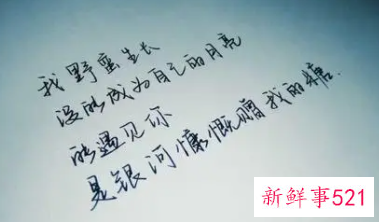 我野蛮生长
没能成为自己的月亮
能遇见你
是银河慷慨赠我的糖.
新鲜事521